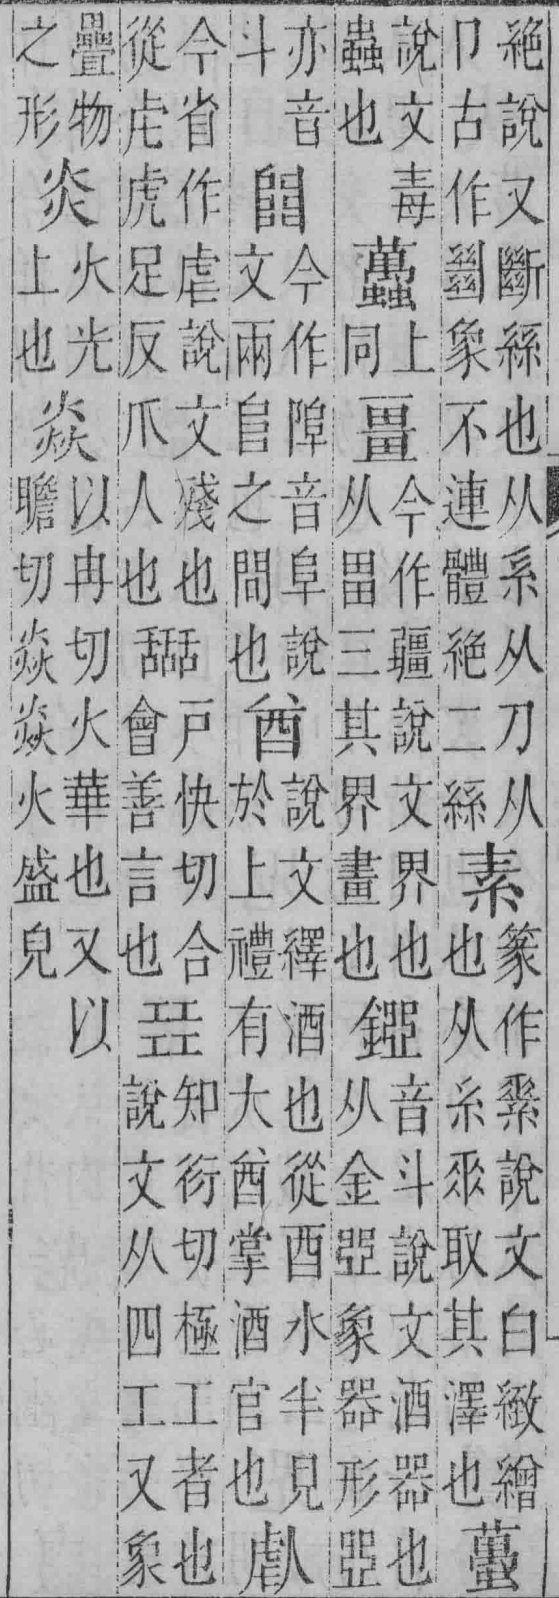 絕說又斷絲也从糸从刀从
卩古作𢇍象不連體絕二絲
素
篆作䋤說文白緻繒
也从糸𠂹取其澤也
蠆
說文毒
蟲也
蠆
上
同
畺
今作疆說文界也
从畕三其界畫也
音斗說文酒器也
从金𠁁象器形𠁁
亦音
斗
𨺅
今作音阜說
文兩𨸏之間也
酋
說文繹酒也從酉水半見
於上禮有大酋掌酒官也
虐
今省作虐說文殘也
從虍虎足反爪人也
𦧵
戶快切合
會善言也
㠭
知衍切極工者也
說文从四工又象
疊物
之形
炎
火光
上也
燚
以冉切火華也又以
贍切焱焱火盛皃